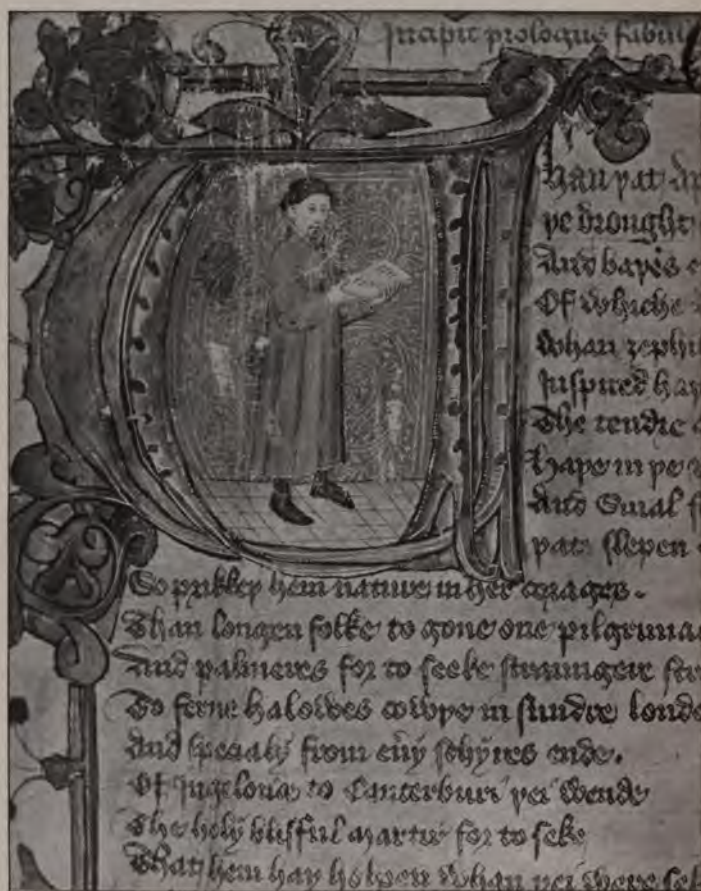 Incipit prologus fabul
Whan þat ap
þe drought
And baþis e
Of whiche
Whan zephi
Inspired haþ
The tendre
Haþe in þe
And Smal f
þat slepen
So prikkeþ hem nature in her corages.
Than longen folke to gone one pilgrimag
And palmeres for to seeke straungeir str
To ferne halowes cowþe in sundre londe
And specialy from euy schyres ende.
Of Ingelond to Canterburi þei wende
The holy blisful martir for to seke
That hem haþ holpen whan þei were sek